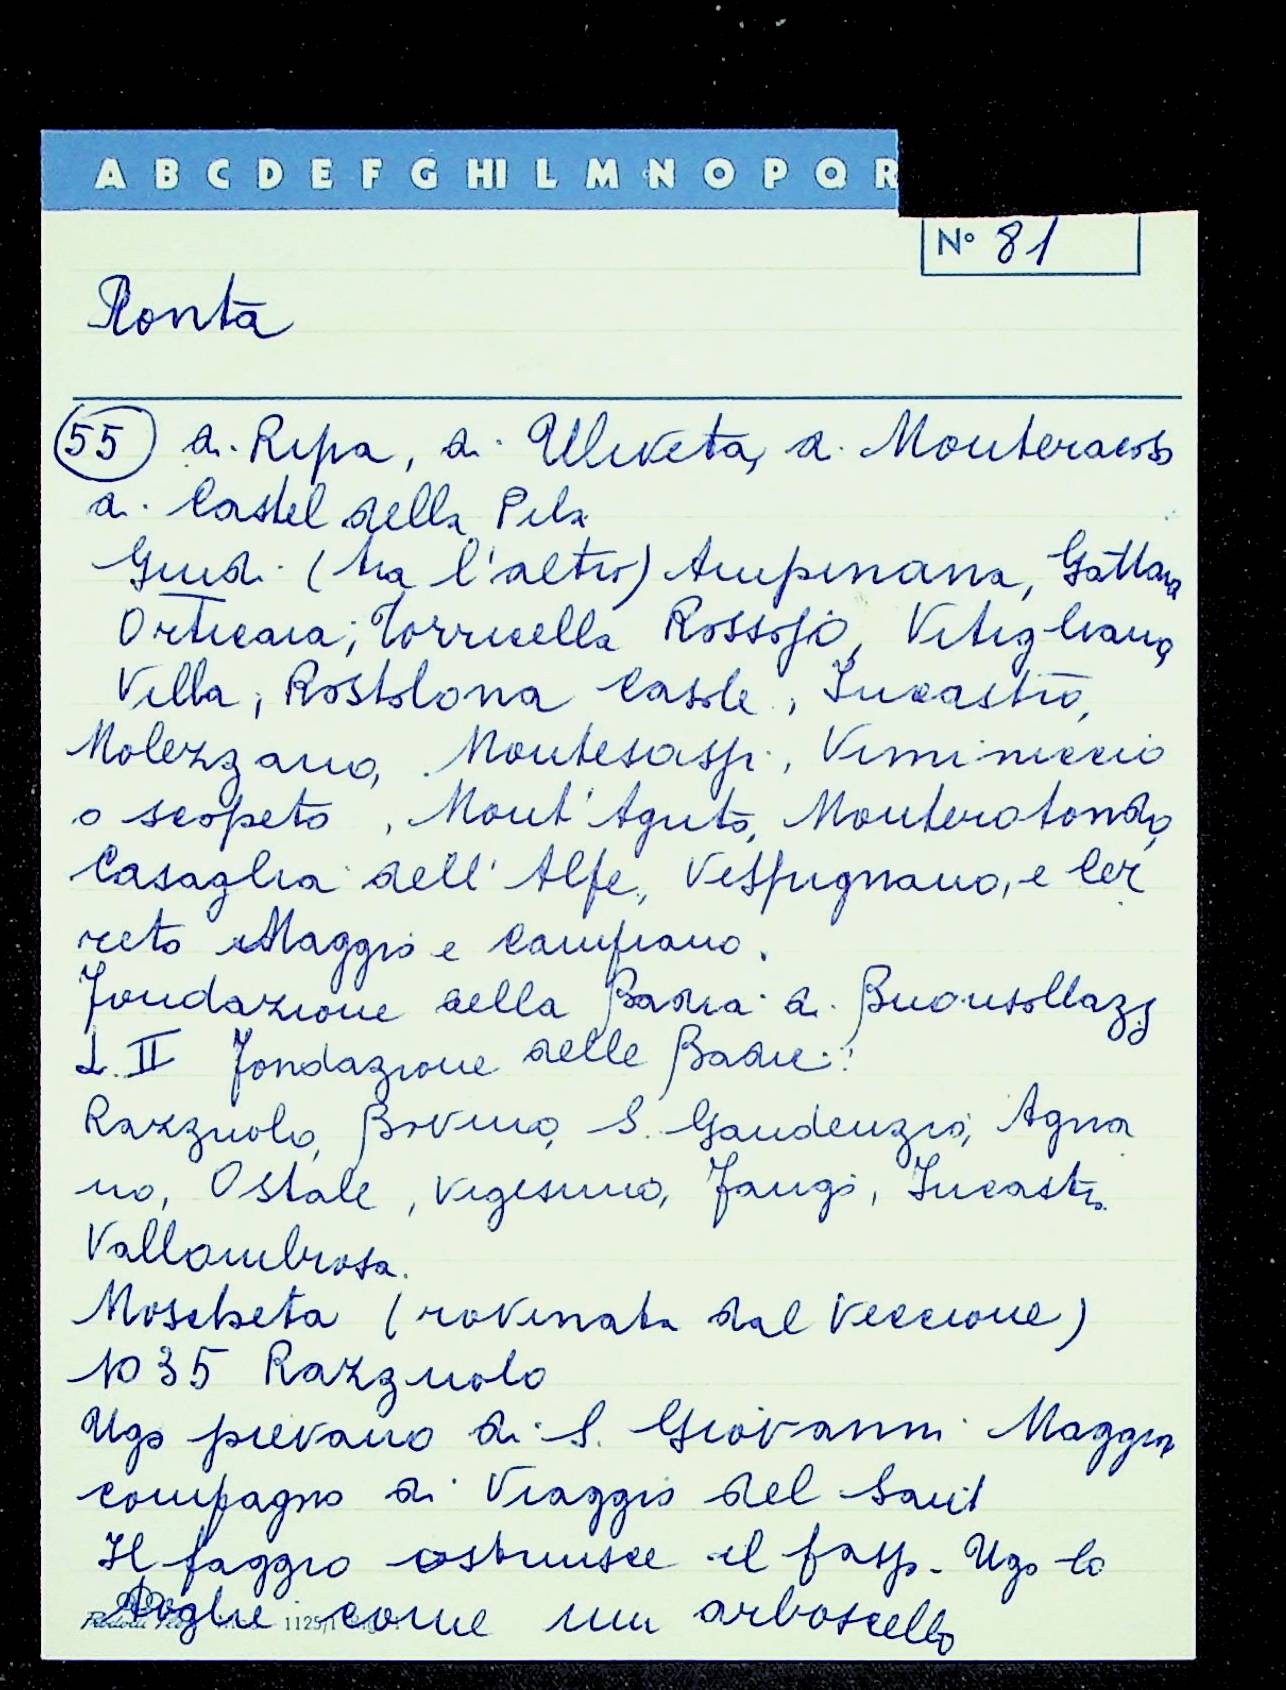 A B C D E F G HI L M N O P Q R
N° 81
Ronta
55 di Ripa, di Uliveta, di Monteracoso
di Castel della Pila
Guidi (tra l'altro) Ampinana, Gattara
Orticaia; Torricella Rossojo, Vitigliano,
Villa, Rostolona Casole, Incastro,
Molezzano, Montesassi, Viminiccio
o scopeto, Mont'Aguto, Monterotondo,
Casaglia dell'Alpe, Vespignano, e Cer
reto Maggio e Campiano.
Fondazione della Badia di Buonsollazz
L. II Fondazione delle Badie:
Razzuolo, Bovino, S. Gaudenzio, Agna
no, Ostale, Vigesimo, Fangi, Incastro
Vallombrosa.
Moscheta (rovinata dal Veccione)
1035 Razzuolo
Ugo pievano di S. Giovanni Maggior
compagno di Viaggio del Sant
Il faggio ostruisce il pass. Ugo lo
toglie come un arboscello